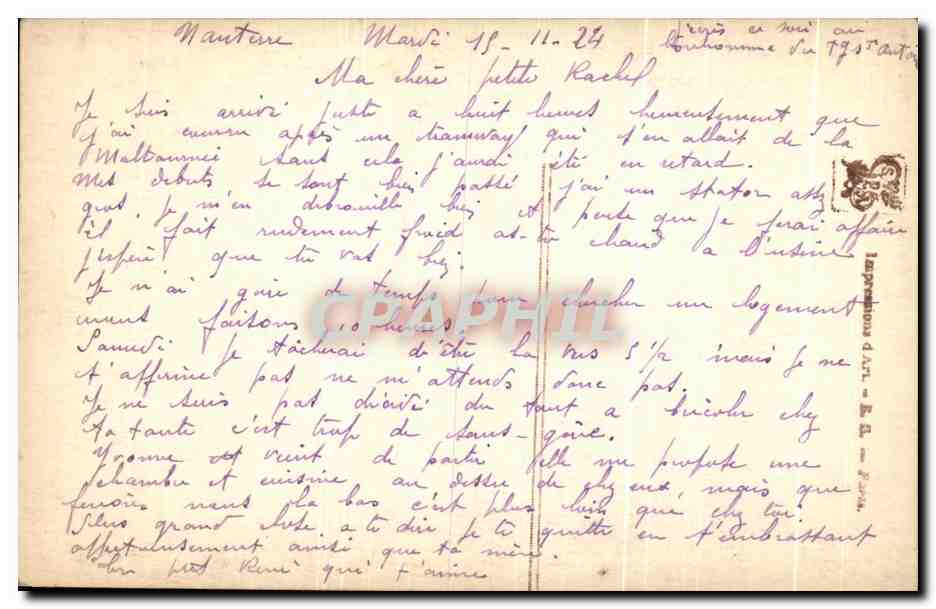 Nanterre Mardi 15-11-24
ce soir au
bonhomme du fg St Antoine
Ma chère petite Rachel
Je suis arrivé juste a huit heures heureusement que
j'ai couru après un tramway qui s'en allait de la
Maltournée sans cela j'aurai été en retard.
Mes debuts se sont bien passé j'ai un stator assez
gros, je m'en debrouille bien et pense que je ferai affaire
il fait rudement froid as-tu chaud a l'usine
j'espère que tu vas bien.
Je n'ai guère de temps pour chercher un logement
nous faisons 10 heures.
Samedi je tâcherai d'être la vers 5 1/2 mais je ne
t'affirme pas ne m'attends donc pas.
Je ne suis pas décidé du tout a bricoler chez
ta tante c'est trop de sans-gêne.
Yvonne vient de partir elle me propose une
chambre et cuisine au dessus de chez eux, mais que
ferions nous la bas c'est plus loin que chez toi.
Plus grand chose a te dire je te quitte en t'embrassant
affectueusement ainsi que ta mère.
Ton petit René qui t'aime
CPRAPHIL
Impressions d'Art - E. D. - Paris.